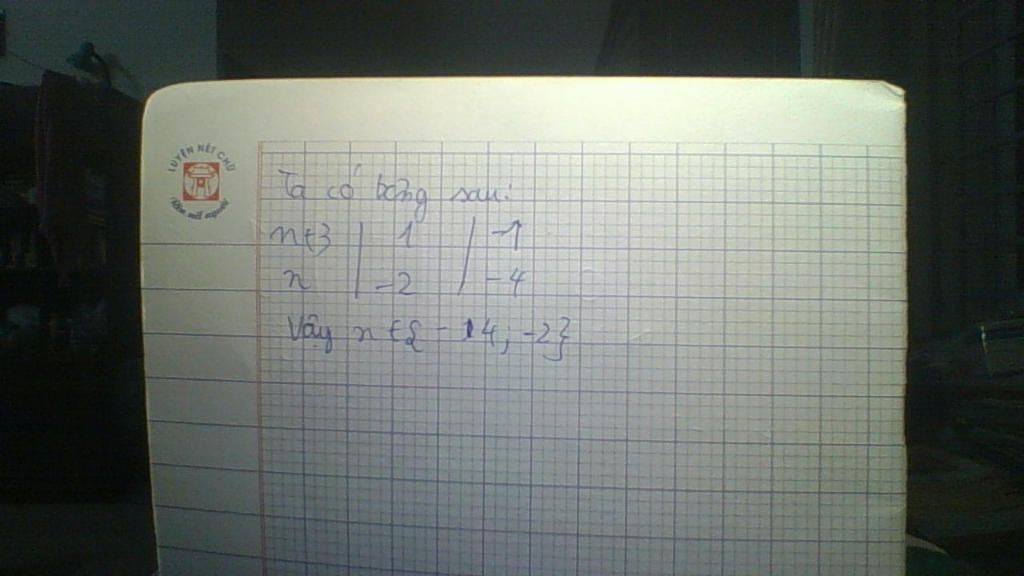 LUYỆN NÉT CHỮ
Rèn nết người
Ta có bảng sau:
n+3 | 1 | -1
n | -2 | -4
Vậy n ∈ { - 4; -2}